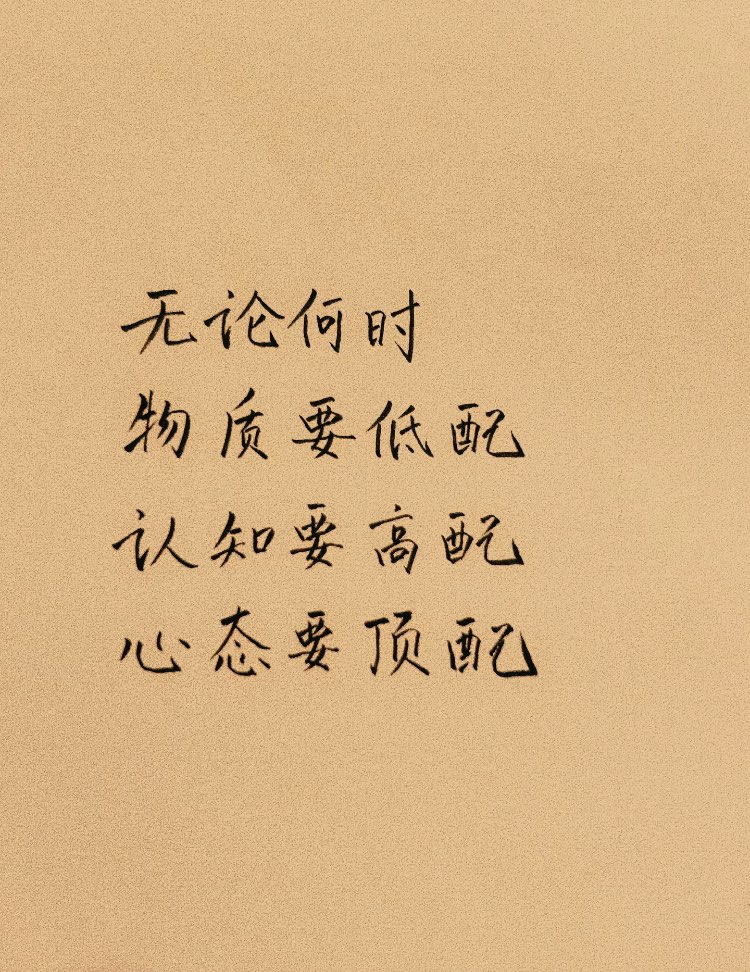 无论何时
物质要低配
认知要高配
心态要顶配